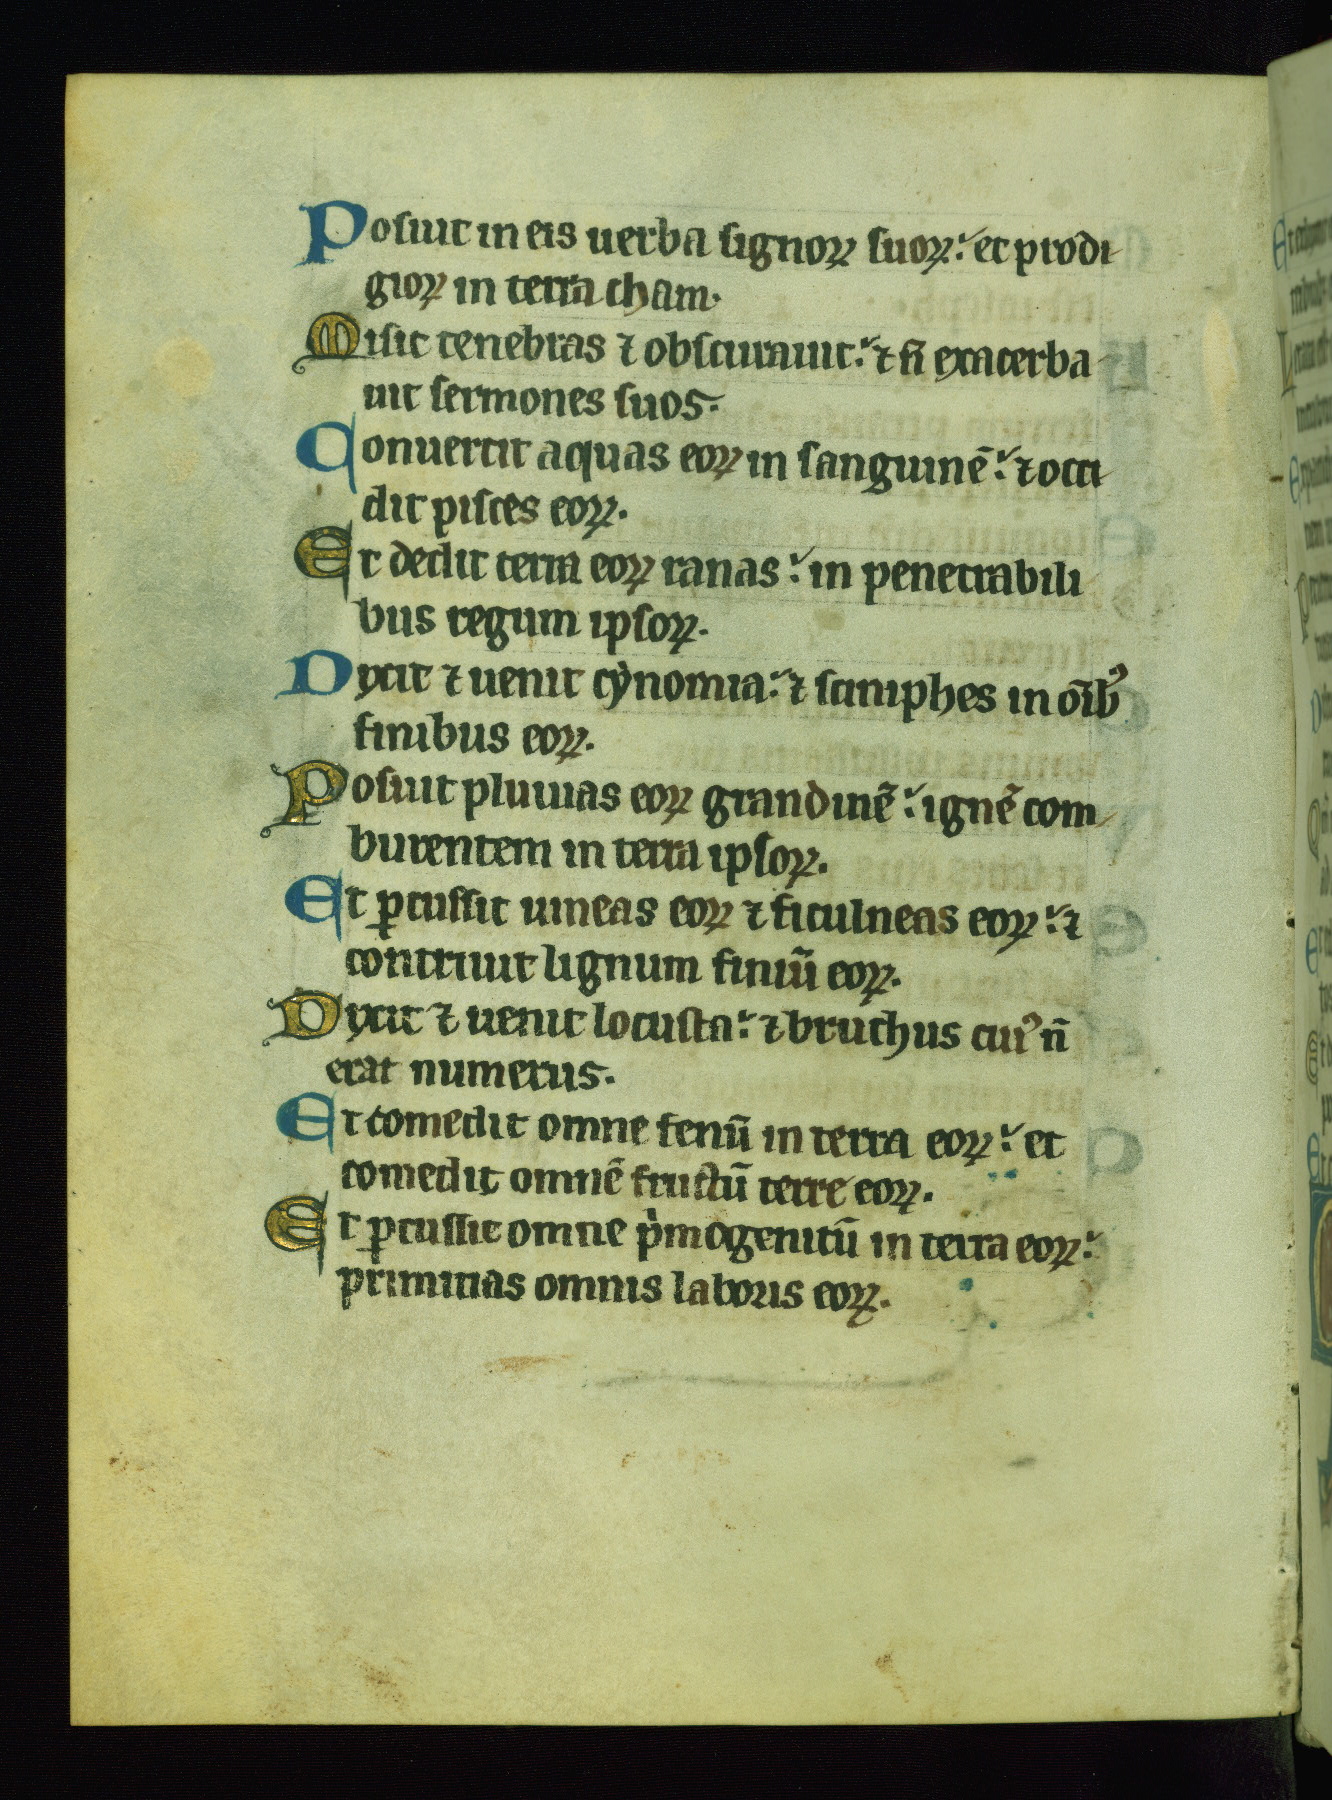 Posuit in eis uerba signoꝝ suoꝝ: et prodi
gioꝝ in terra cham.
Misit tenebras ⁊ obscurauit: ⁊ n̄ exacerba
uit sermones suos.
Conuertit aquas eoꝝ in sanguinē: ⁊ occi
dit pisces eoꝝ.
Et dedit terra eoꝝ ranas: in penetrabili
bus regum ipsoꝝ.
Dixit ⁊ uenit cẏnomia: ⁊ sciniphes in oīb᾽
finibus eoꝝ.
Posuit pluuias eoꝝ grandinē: ignē com
burentem in terra ipsoꝝ.
Et ꝑcussit uineas eoꝝ ⁊ ficulneas eoꝝ: ⁊
contriuit lignum finiū eoꝝ.
Dixit ⁊ uenit locusta: ⁊ bruchus cui᾽ n̄
erat numerus.
Et comedit omne fenū in terra eoꝝ: et
comedit omnē fructū terre eoꝝ.
Et ꝑcussit omne pͥmogenitū in terra eoꝝ:
primitias omnis laboris eoꝝ.